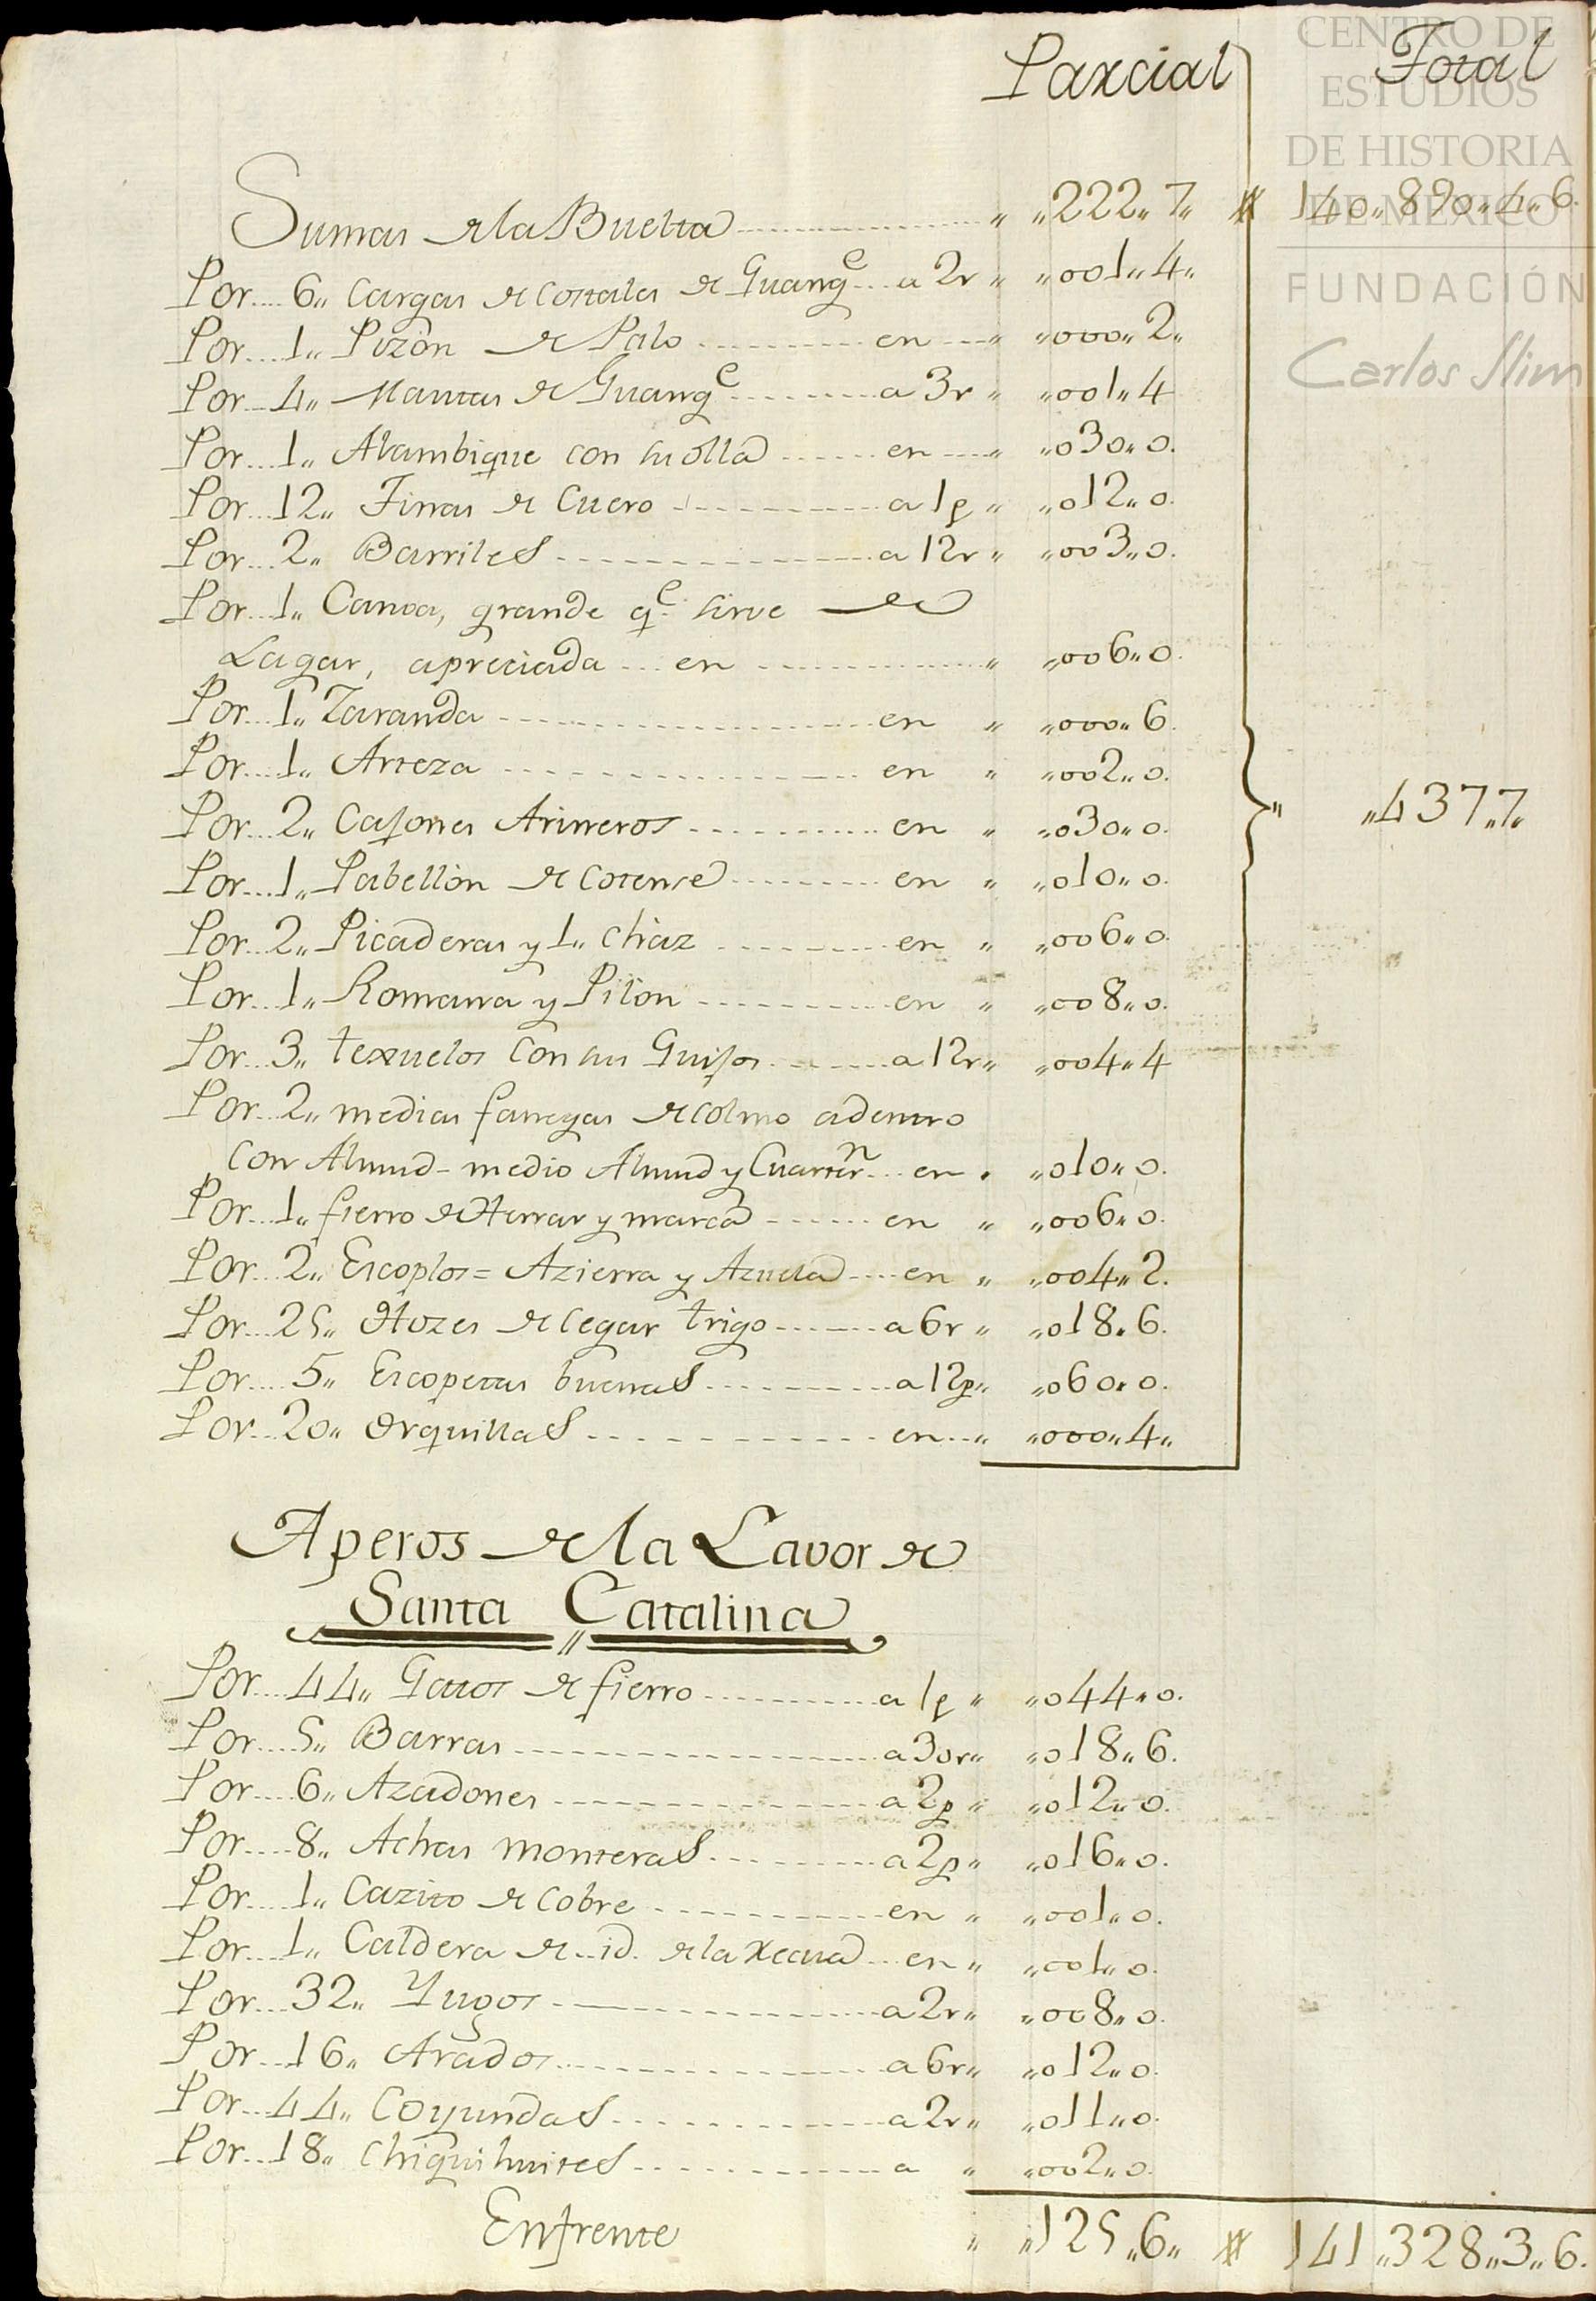 Parcial Total
Sumas de la Buelta „ „222„7„ # 140„890„4„6.
Por 6„ Cargas de Costales de Guangᵉ a 2r „ „001„4„
Por 1„ Pizón de Palo en „ „000„2„
Por 4„ Mantas de Guangᵉ a 3r „ „001„4
Por 1„ Alambique con su olla en „ „030„0.
Por 12„ Tinas de Cuero a 1p „ „012„0.
Por 2„ Barriles a 12r „ „003„0.
Por 1„ Canoa, grande qᵉ sirve de
Lagar, apreciada en „ „006„0.
Por 1„ Zaranda en „ „000„6.
Por 1„ Arteza en „ „002„0.
Por 2„ Cajones Arineros en „ „030„0. „ „437„7„
Por 1„ Pabellón de Cotense en „ „010„0.
Por 2„ Picaderas y 1„ chaz en „ „006„0.
Por 1„ Romana y Pilón en „ „008„0.
Por 3„ texuelos con sus Guijos a 12r„ „004„4
Por 2„ medias fanegas de colmo adentro
con Almud - medio Almud y Cuarterⁿ en „ „010„0.
Por 1„ fierro de Herrar y marca en „ „006„0.
Por 2„ Escoplos = Azierra y Azuela en „ „004„2.
Por 25„ Hozes de cegar trigo a 6r „ „018„6.
Por 5„ Escopetas buenas a 12p„ „060„0.
Por 20„ Orquillas en „ „000„4„
Aperos de la Lavor de
Santa Catalina
Por 44„ Gatos de fierro a 1p „ „044„0.
Por 5„ Barras a 30r„ „018„6.
Por 6„ Azadones a 2p „ „012„0.
Por 8„ Achas monteras a 2p„ „016„0.
Por 1„ Cazito de Cobre en „ „001„0.
Por 1„ Caldera de id. de la Xecua en „ „001„0.
Por 32„ Yugos a 2r„ „008„0.
Por 16„ Arados a 6r„ „012„0.
Por 44„ Coyundas a 2r„ „011„0.
Por 18„ chiquihuites a „ „002„0.
Enfrente „ „125„6„ # 141„328„3„6.
CENTRO DE
ESTUDIOS
DE HISTORIA
DE MÉXICO
FUNDACIÓN
Carlos Slim